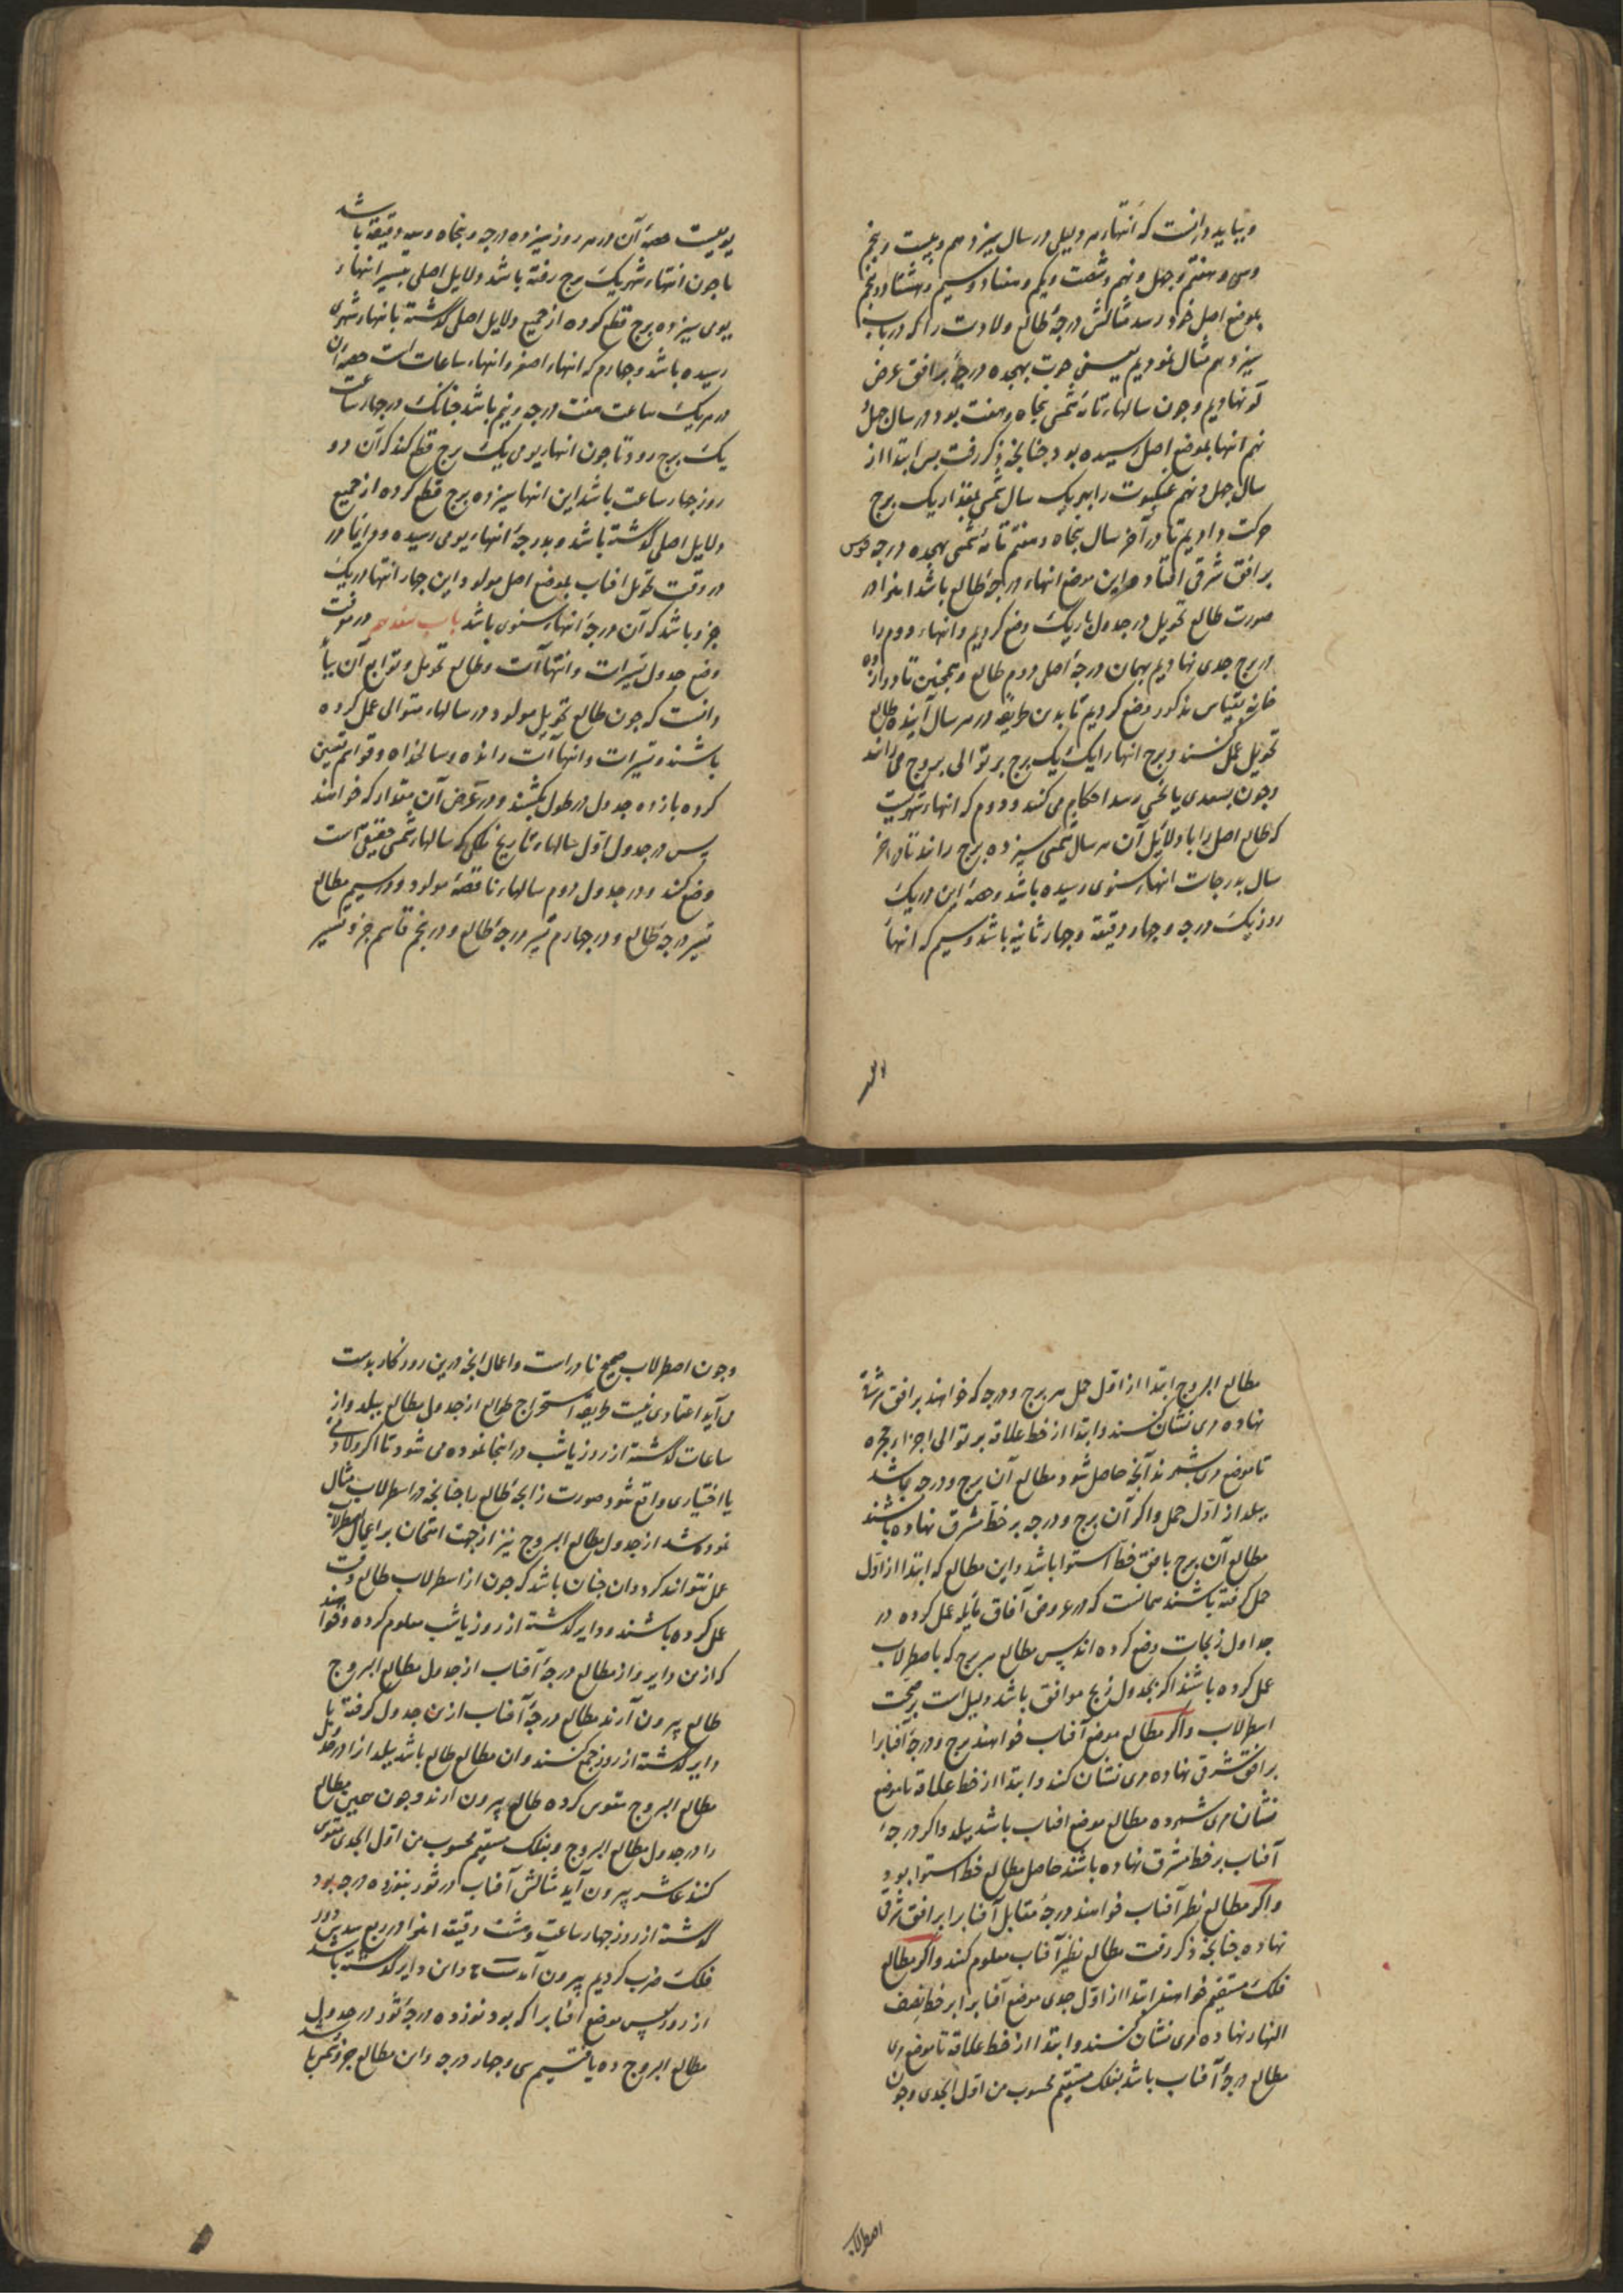 و بباید دانست که انتهاء هر دلیلی در سال سیزدهم و بیست و پنجم
وسی و هفتم و چهل و نهم و شصت و یکم و هفتاد و سیم و هشتاد و پنجم
بموضع اصل خود رسد مثالش درجهٔ طالع ولادت را که در باب
سیزدهم مثال نمودیم یعنی حوت بهجده درجه بر افق عرض
لو نهادیم و چون سالهاء تامهٔ شمسی پنجاه و هفت بود در سال چهل
نهم انتها بموضع اصل رسیده بود چنانچه ذکر رفت پس ابتدا از
سال چهل و نهم عنکبوت را بهر یک سال شمسی بمقدار یک برج
حرکت دادیم تا در آخر سال پنجاه و هفتم تامهٔ شمسی بهجده درجه قوس
بر افق شرقی افتاد و این موضع انتهاء درجهٔ طالع باشد اینرا در
صورت طالع تحویل در جدول باریک وضع کردیم و انتهاء دوم را
در برج جدی نهادیم بهمان درجهٔ اصل دوم طالع و همچنین تا دوازده
خانه بقیاس مذکور وضع کردیم تا بدین طریقه در هر سال آینده طالع
تحویل عمل کنند و برج انتها را یک یک برج بر توالی بروج می رانند
و چون بسعدی یا نحسی رسد احکام می کنند و دوم که انتهاء شهریست
که طالع اصل را با دلایل آن هر سال شمسی سیزده برج رانند تا در آخر
سال بدرجات انتهاء سنوی رسیده باشد و حصهٔ این در یک
روز یک درجه و چهار دقیقه و چهار ثانیه باشد و سیم که انتهاء
یومیست حصهٔ آن در هر روز سیزده درجه و پنجاه و سه دقیقه باشد
تا چون انتهاء شهر یک برج رفته باشد دلایل اصلی بتسیر انتهاء
یومی سیزده برج قطع کرده از جمیع دلایل اصلی گذشته بانتهاء شهری
رسیده باشد و چهارم که انتهاء اصغر و انتهاء ساعات است حصهٔ آن
در هر یک ساعت هفت درجه و نیم باشد چنانک در چهار ساعت
یک برج رود تا چون انتهاء یومی یک برج قطع کند که آن دو
روز چهار ساعت باشد این انتها سیزده برج قطع کرده از جمیع
دلایل اصلی گذشته باشد و بدرجهٔ انتهاء یومی رسیده
در وقت تحویل افتاب بموضع اصل مولود این چهار انتها در یک
جزو باشد که آن درجهٔ انتهاء سنوی باشد باب هفدهم در معرفت
وضع جدول تسیرات و انتهاآت و طالع تحویل و توابع آن بباید
دانست که چون طالع تحویل مولود در سالهاء متوالی عمل کرده
باشند و تسیرات و انتهاآت رانده و سالخداه و قواسم تعیین
کرده یازده جدول در طول بکشند و در عرض آن بمقدار که خواهند
پس در جدول اول سالهاء تاریخ ملکی که سالهاء شمسی حقیقی است
وضع کند و در جدول دوم سالهاء ناقصهٔ مولود و در سیم مطالع
تسیر درجهٔ طالع و در چهارم تسیر درجهٔ طالع و در پنجم قاسم جزو تسیر
مطالع البروج ابتدا از اول حمل هر برج و درجه که خواهند بر افق شرقی
نهاده مری نشان کنند و ابتدا از خط علاقه بر توالی اجزاء حجره
تا موضع مری بشمرند آنچه حاصل شود مطالع آن برج و درجه باشد
ببلد از اول حمل و اگر آن برج و درجه بر خط مشرق نهاده باشند
مطالع آن برج بافق خط استوا باشد و این مطالع که ابتدا از اول
حمل گرفته باشند همانست که در عروض آفاق مایله عمل کرده در
جداول زیجات وضع کرده اند پس مطالع هر برج که باصطرلاب
عمل کرده باشند اگر بجدول زیج موافق باشد دلیل است بر صحت
اسطرلاب و اگر مطالع موضع آفتاب خواهند برج و درجهٔ آفتابرا
بر افق شرقی نهاده مری نشان کند و ابتدا از خط علاقه تا موضع
نشان مری شمرده مطالع موضع افتاب باشد ببلد و اگر درجهٔ
آفتاب بر خط مشرق نهاده باشند حاصل مطالع خط استوا بود
و اگر مطالع نظیر آفتاب خواهند درجهٔ مقابل آفتابرا بر افق شرقی
نهاده چنانچه ذکر رفت مطالع نظیر آفتاب معلوم کنند و اگر مطالع
فلک مستقیم خواهند ابتدا از اول جدی موضع آفتابرا بر خط نصف
النهار نهاده مری نشان کنند و ابتدا از خط علاقه تا موضع مری
مطالع درجهٔ آفتاب باشد بفلک مستقیم محسوب من اول الجدی و چون
اصطرلاب
و چون اصطرلاب صحیح نادر است و اعمال انچه درین روزگار بدست
می آید اعتمادی نیست طریقهٔ استخراج طوالع از جدول مطالع ببلد و از
ساعات گذشته از روز یا شب در اینجا نموده می شود تا اگر ولادتی
یا اختیاری واقع شود صورت زایجهٔ طالع را چنانچه در اسطرلاب مثال
نموده شد از جدول مطالع البروج نیز از جهت امتحان بر اعمال اسطرلاب
عمل بتواند کرد و ان چنان باشد که چون از اسطرلاب طالع وقت
عمل کرده باشند و دایر گذشته از روز یا شب معلوم کرده و خواهند
که ازین دایر و از مطالع درجهٔ آفتاب از جدول مطالع البروج
طالع بیرون آرند مطالع درجهٔ آفتاب ازین جدول گرفته با
دایر گذشته از روز جمع کنند و ان مطالع طالع باشد ببلد انرا در جدول
مطالع البروج مقوس کرده طالع بیرون ارند و چون همین مطالع
را در جدول مطالع البروج بفلک مستقیم محسوب من اول الجدی مقوس
کنند عاشر بیرون آید مثالش آفتاب در ثور بنوزده درجه بود
گذشته از روز چهار ساعت و هشت دقیقه انرا در ربع سدس دور
فلک ضرب کردیم بیرون آمد و ان دایر گذشته باشد
از روز پس موضع افتابرا که بود نوزده درجهٔ ثور در جدول
مطالع البروج ده یافتیم سی و چهار درجه و ان مطالع جزو شمس باشد